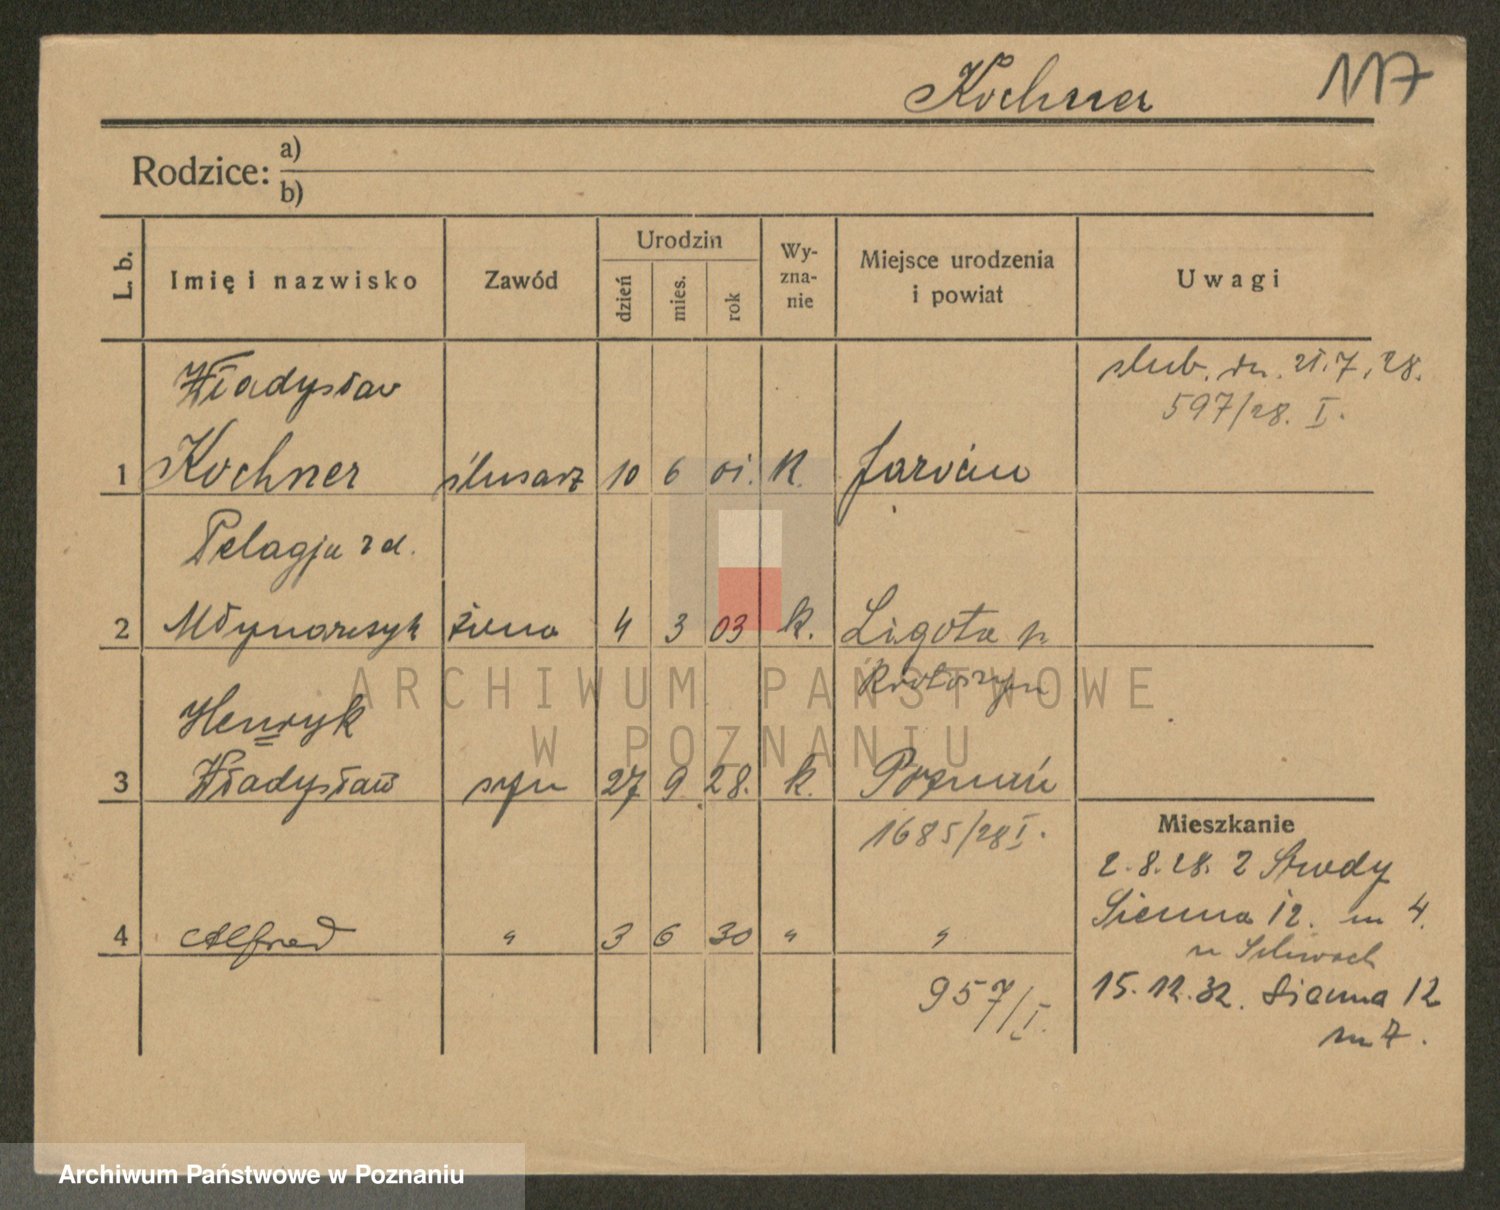 Kochner 117
Rodzice: a)
b)
L. b. Imię i nazwisko Zawód Urodzin dzień mies. rok Wy-zna-nie Miejsce urodzenia i powiat Uwagi
Władysław ślub. dn. 21.7.28.
597/28. I.
1 Kochner ślusarz 10 6 01. k. Jarocin
Pelagja zd.
2 Młynarczyk żona 4 3 03 k. Ligota p.
Krotoszyn
Henryk
3 Władysław syn 27 9 28. k. Poznań
1685/28 I.
Mieszkanie
2.8.28. z Środy
Sienna 12. m 4.
4 Alfred " 3 6 30 " "
15.12.32. Sienna 12
m 7.
957/I.
ARCHIWUM PAŃSTWOWE
W POZNANIU
Archiwum Państwowe w Poznaniu